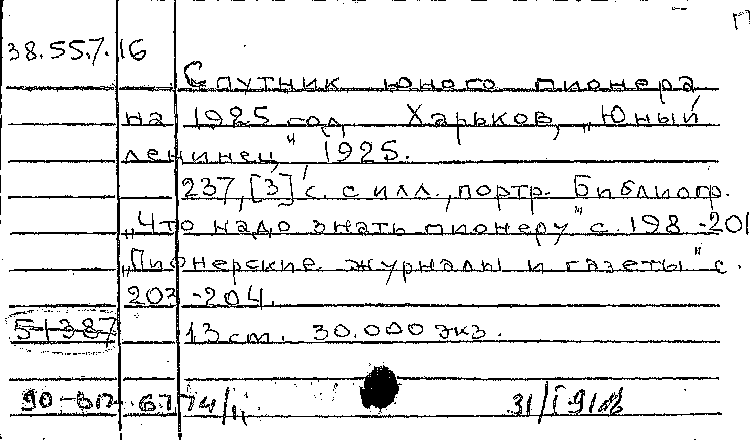 П
38.55.7.16
Спутник юного пионера
на 1925 год. Харьков, „Юный
ленинец", 1925.
237,[3] с. с илл., портр. Библиогр.
„Что надо знать пионеру" с. 198-201
„Пионерские журналы и газеты" с.
203-204.
51387 13 cm. 30.000 экз.